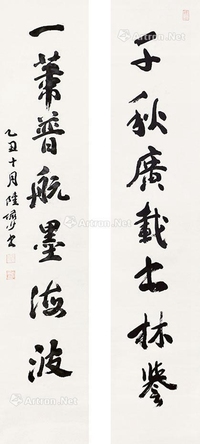 千秋廣載士林譽
一葦普航墨海波
乙丑十月陸